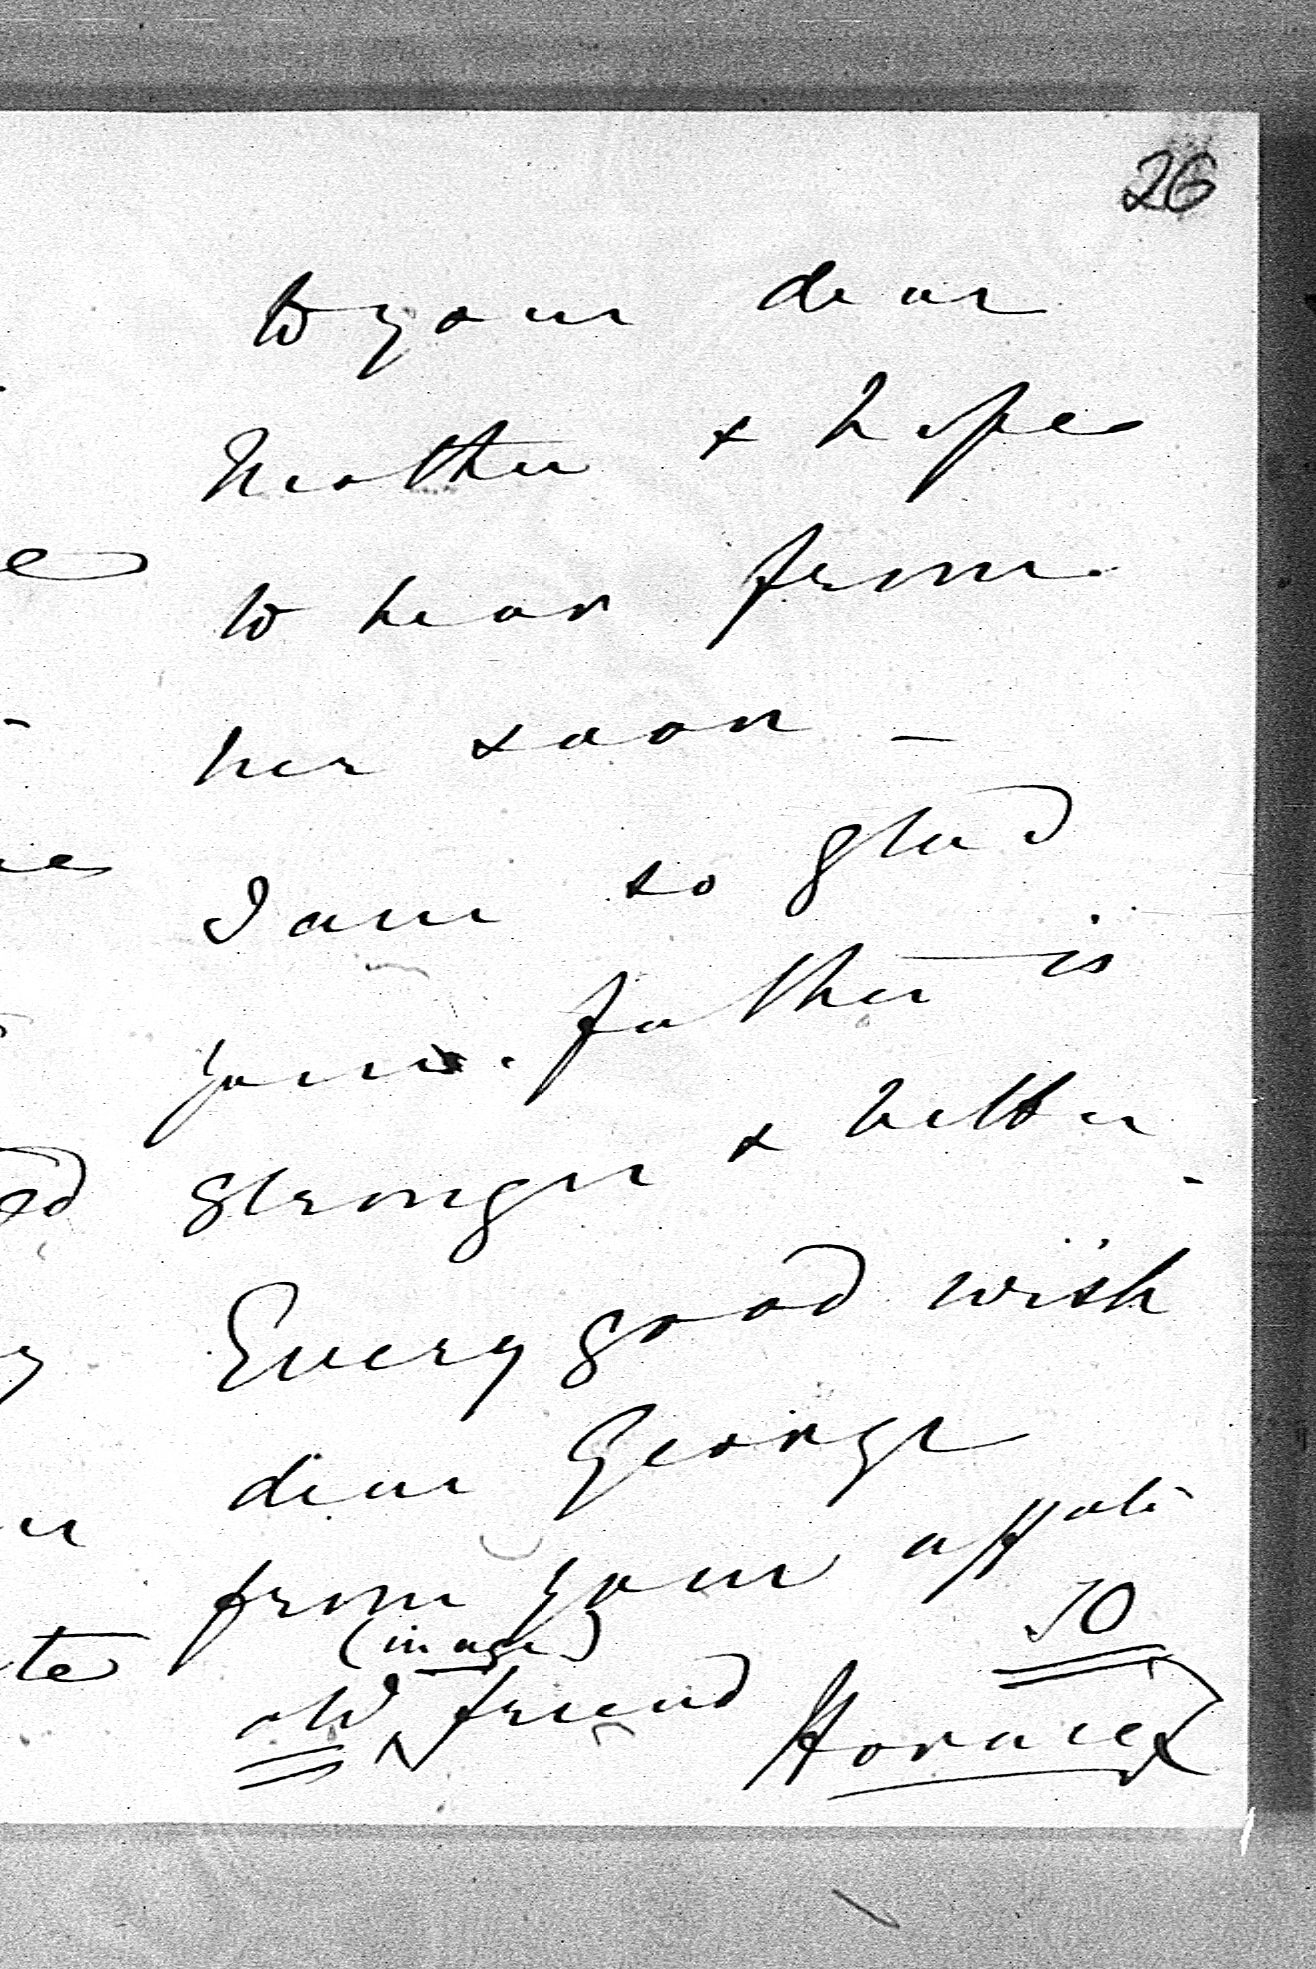 26
to your dear
Mother & hope
to hear from
her soon –
I am so glad
your father is
stronger & better.
Every good wish
dear George
from your affate
(in age)
old friend
Horace